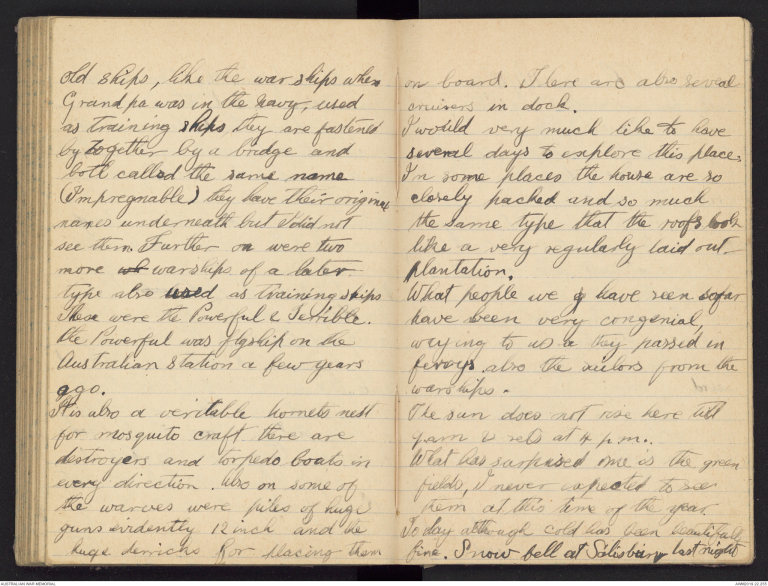 old ships, like the war ships when
Grandpa was in the navy, used
as training ships they are fastened
by together by a bridge and
both called the same name
(Impregnable) they have their original
names underneath but I did not
see them. Further on were two
more warships of a later
type also used as training ships
These were the Powerful & Terrible.
the Powerful was flgship on the
Australian Station a few years
ago.
It is also a veritable hornets nest
for mosquito craft there are
destroyers and torpedo boats in
every direction. Also on some of
the warves were piles of huge
guns evidently 12 inch and the
huge derricks for placing them
on board. There are also several
cruisers in dock.
I would very much like to have
several days to explore this place.
In some places the house are so
closely packed and so much
the same type that the roofs look
like a very regularly laid out
plantation.
What people we have seen sofar
have been very congenial,
to us a they passed in
ferrys also the sailors from the
warships.
The sun does not rise here till
9 am & sets at 4 p.m..
What has surprised me is the green
fields, I never expected to see
them at this time of the year.
To day although cold has been beautifully
fine. Snow fell at Salisbury last night
AUSTRALIAN WAR MEMORIAL